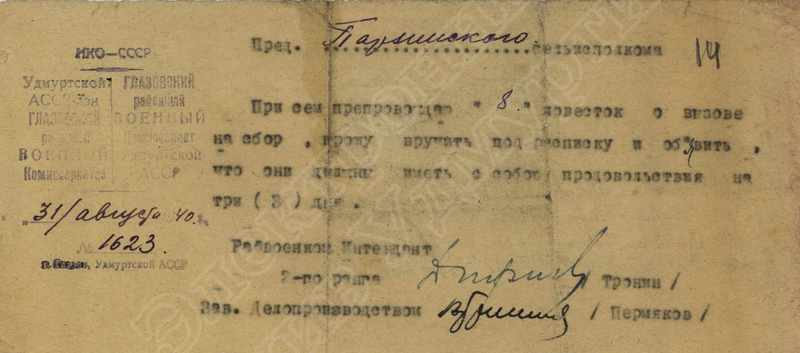 НКО-СССР
Удмуртской
АССР
ГЛАЗОВСКИЙ
районный
ВОЕННЫЙ
Комиссариат
ГЛАЗОВСКИЙ
районный
ВОЕННЫЙ
Комиссариат
Удмуртской
АССР
"31/августа 40 г.
№ 1623
г. Глазов, Удмуртской АССР
Пред. Парзинского сельисполкома
14
При сем препровождаю "8" повесток о вызове
на сбор, прошу вручать под расписку и объявить,
что они должны иметь с собою продовольствия на
три (3) дня.
Райвоенком Интендант
2-го ранга / Тронин /
Зав. Делопроизводством / Пермяков /